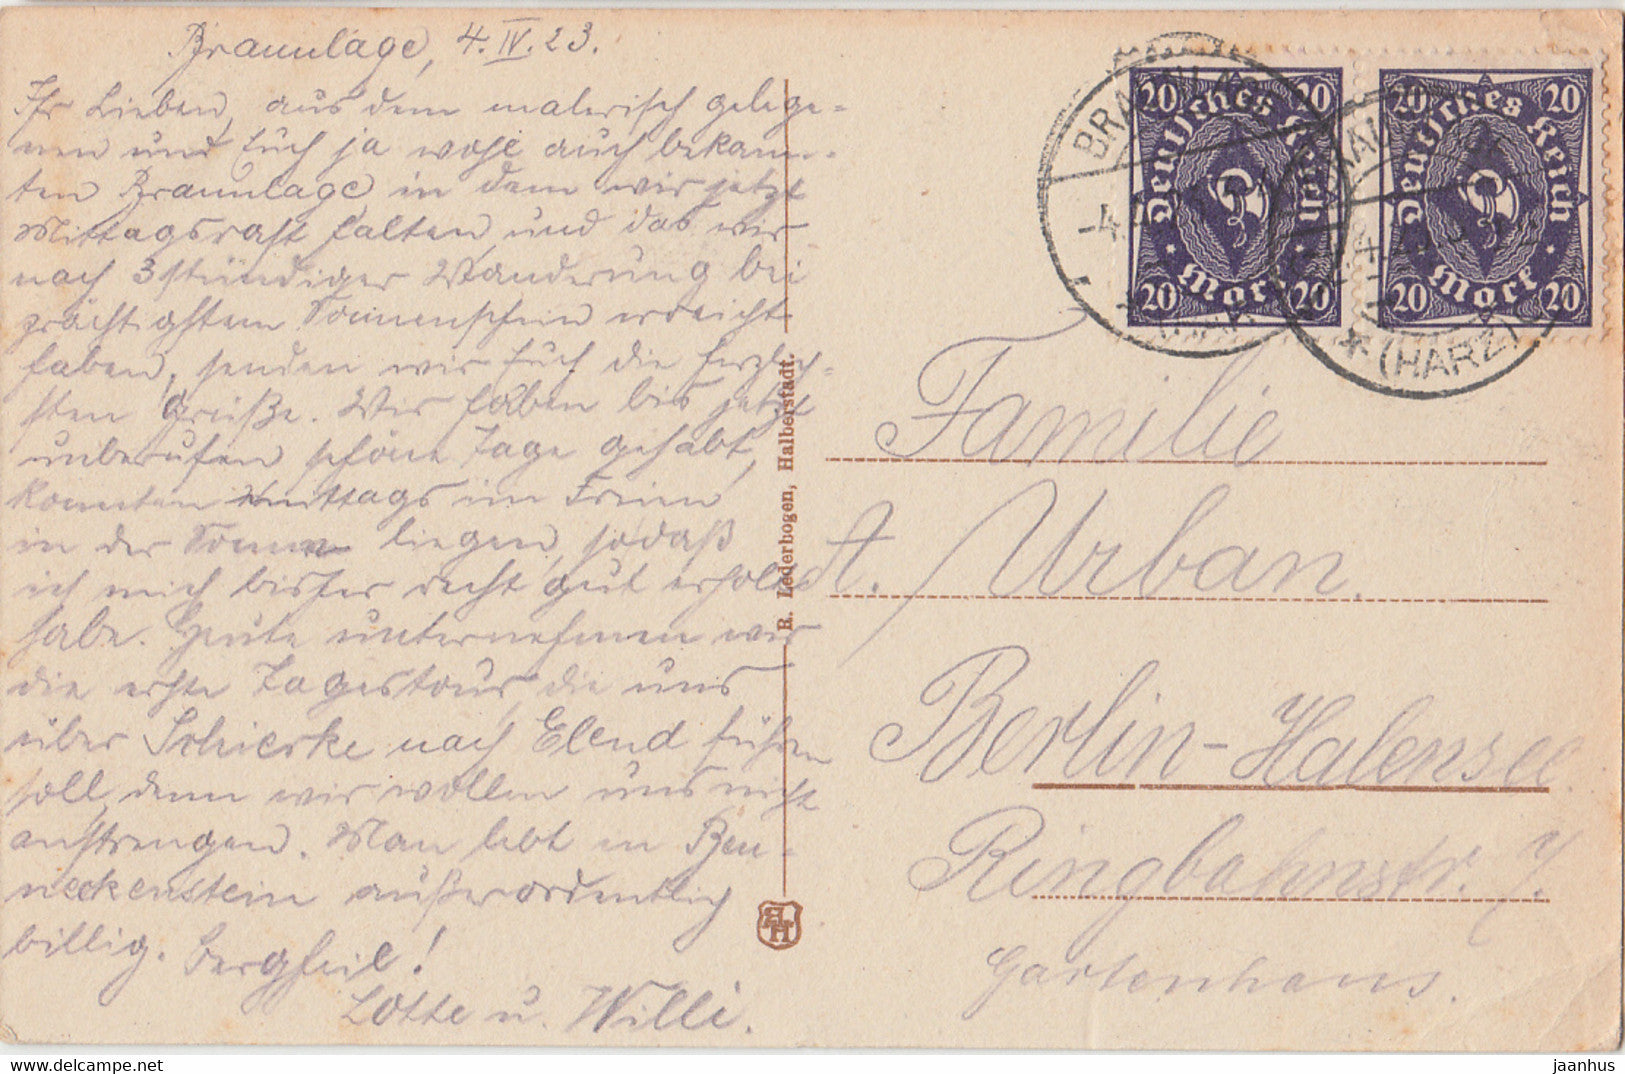 Braunlage, 4.IV.23.
Ihr Lieben, aus dem malerisch gelege-
nen und Euch ja wohl auch bekann-
ten Braunlage in dem wir jetzt
Mittagsrast halten und das wir
nach 3 stündiger Wanderung bei
prächtigstem Sonnenschein erreicht
haben, senden wir Euch die herzlich-
sten Grüße. Wir haben bis jetzt
unberufen schöne Tage gehabt,
konnten mittags im Freien
in der Sonne liegen, sodaß
ich mich bisher recht gut erholt
habe. Heute unternehmen wir
die erste Tagestour, die uns
über Schierke nach Elend führen
soll, denn wir wollen uns nicht
anstrengen. Man lebt in Ben-
neckenstein außerordentlich
billig. Bergheil!
Lotte u. Willi.
R. Lederbogen, Halberstadt.
HH
20 20
Deutsches Reich
Mark
20 20
20 20
Deutsches Reich
Mark
20 20
BRAUNLAGE
(HARZ)
Familie
A. Urban.
Berlin-Halensee
Ringbahnstr. 7.
Gartenhaus.
jaanhus